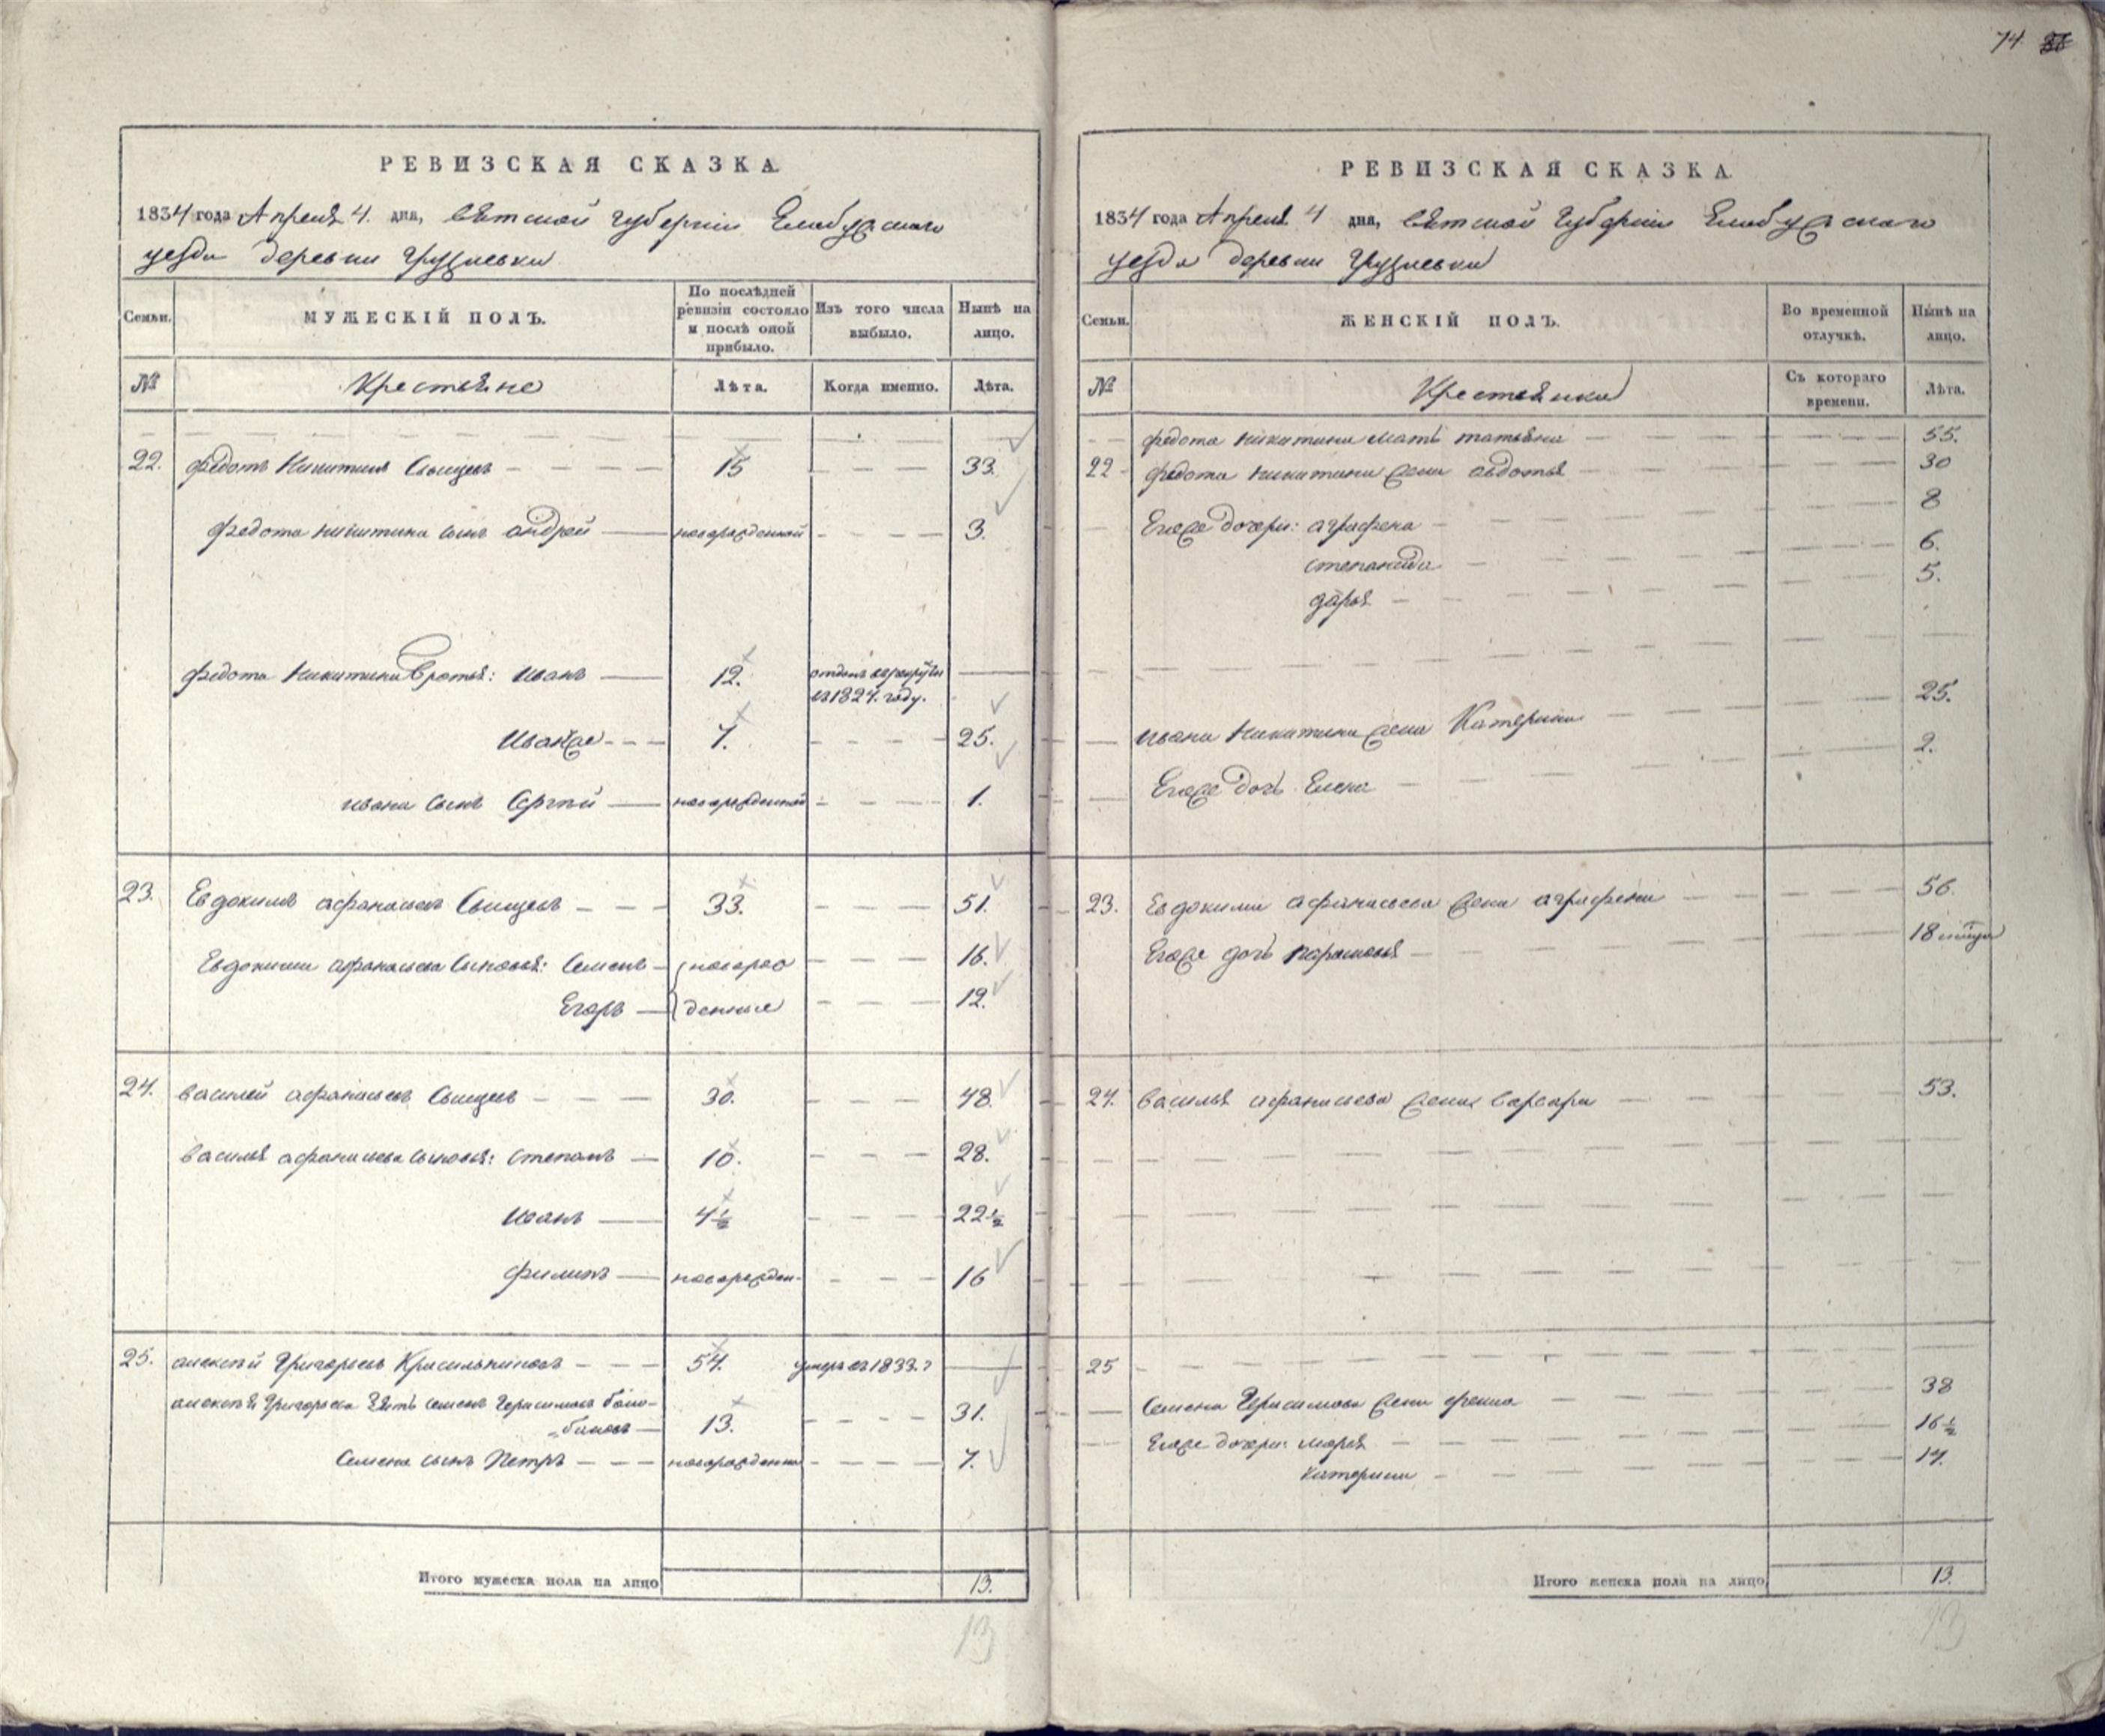 74.
РЕВИЗСКАЯ СКАЗКА.
1834 года Апреля 4. дня, Вятской губернiи Елабужскаго
уезда деревни
Семьи.
МУЖЕСКІЙ ПОЛЪ.
По послѣдней ревизіи состояло и послѣ оной прибыло.
Изъ того числа выбыло.
Нынѣ на лицо.
№
Крестьяне
Лѣта.
Когда именно.
Лѣта.
22. Федотъ Никитинъ 15 33.
Федота Никитина сынъ Андрей новорожденной 3.
Федота Никитина братья: Иванъ 12. отданъ въ рекруты
въ 1824. году.
Иванже 7. 25.
Ивана сынъ Сергей новорожденной 1.
23. Евдокимъ Афанасьевъ 33. 51.
Евдокима Афанасьева сыновья: Семенъ новорож 16.
Егоръ денные 12.
24. Василей Афанасьевъ 30. 48.
Василья Афанасьева сыновья: Степанъ 10. 28.
Иванъ 4½ 22½
Филипъ новорожден 16
25. Алексѣй Григорьевъ Красильниковъ 54. умеръ въ 1833. г
Алексѣя Григорьева зять Семенъ Герасимовъ бало-
бановъ 13. 31.
Семена сынъ Петръ новорожденны 7.
Итого мужеска пола на лицо 13.
13
РЕВИЗСКАЯ СКАЗКА.
1834 года Апреля 4 дня, Вятской Губернiи Елабужскаго
уезда деревни
Семьи.
ЖЕНСКІЙ ПОЛЪ.
Во временной отлучкѣ.
Нынѣ на лицо.
№
Крестьянки
Съ котораго времени.
Лѣта.
Федота Никитина мать Татьяна 55.
22 Федота Никитина жена Авдотья 30
Егоже дочери: Аграфена 8
Степанида 6.
Дарья 5.
Ивана Никитина жена Катерина 25.
Егоже дочь Елена 2.
23. Евдокима Афанасьева жена Аграфена 56.
Егоже дочь Парасковья 18
24. Василья Афанасьева жена Варвара 53.
25
Семена Герасимова жена 38
Егоже дочери: Марья 16½
Катерина 14.
Итого женска пола на лицо 13.
13